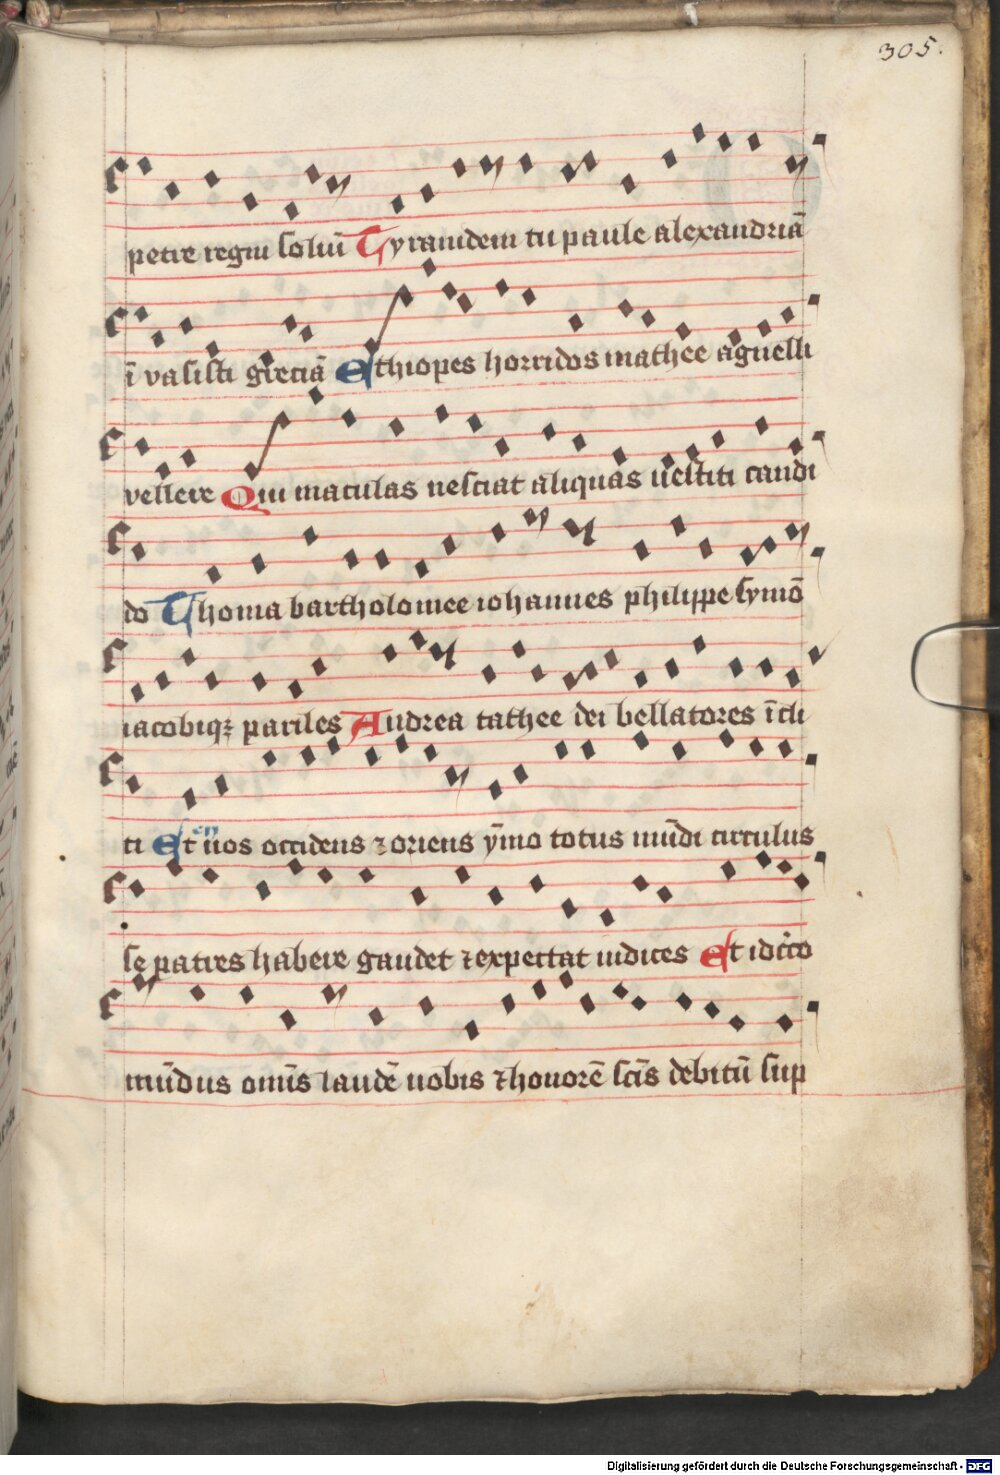 305.
petre regni soliū Tyrannidem tu paule alexandriā
ī vasisti greciā Ethiopes horridos mathee agnelli
vellere Qui maculas nesciat aliquas uestiti candi
do Thoma bartholomee iohannes philippe symō
iacobiqꝫ pariles Andrea tathee dei bellatores īcli
ti En
Et uos occidens ⁊ oriens ymo totus mūdi circulus
se patres habere gaudet ⁊ expectat iudices Et idcirco
mūdus omīs laudē uobis ⁊ honorē scīs debitū sup
Digitalisierung gefördert durch die Deutsche Forschungsgemeinschaft - DFG